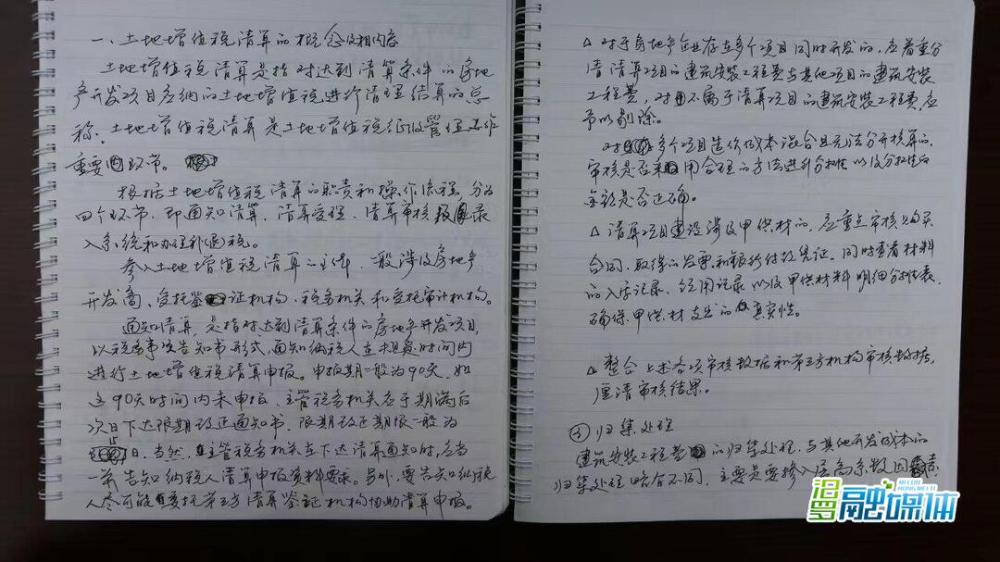 一、土地增值税清算的概念及相关内容
土地增值税清算是指对达到清算条件的房地
产开发项目应纳的土地增值税进行清理结算的总
称。土地增值税清算是土地增值税征收管理工作
重要的环节。
根据土地增值税清算的职责和操作流程，分为
四个环节，即通知清算，清算受理，清算审核及录
入系统和办理补退税。
参入土地增值税清算的主体，一般涉及房地产
开发商、受托鉴证机构、税务机关和受托审计机构。
通知清算，是指对达到清算条件的房地产开发项目，
以税务事项告知书形式，通知纳税人在规定时间内
进行土地增值税清算申报。申报期一般为90天，如
这90天时间内未申报，主管税务机关应于期满后
次日下达限期改正通知书，限期改正期限一般为
15日，当然，主管税务机关在下达清算通知时，应当
一并告知纳税人清算申报资料要求。另外，要告知纳税
人尽可能委托第三方清算鉴证机构协助清算申报。
△ 对于房地产企业存在多个项目同时开发的，应着重分
清清算项目的建筑安装工程费与其他项目的建筑安装
工程费，对不属于清算项目的建筑安装工程费，应
予以剔除。
对多个项目造价成本混合且无法分开核算的，
审核是否采用合理的方法进行分摊以及分摊后
金额是否正确。
△ 清算项目建设涉及甲供材的，应重点审核购买
合同，取得的发票和银行付款凭证。同时查看材料
的入库记录、领用记录以及甲供材料明细分摊表，
确保甲供材支出的真实性。
△ 整合上述各项审核数据和第三方机构审核数据，
厘清审核结果。
② 归集处理
建筑安装工程费的归集处理，与其他开发成本的
归集处理略有不同，主要是要掺入层高系数因素
融媒体